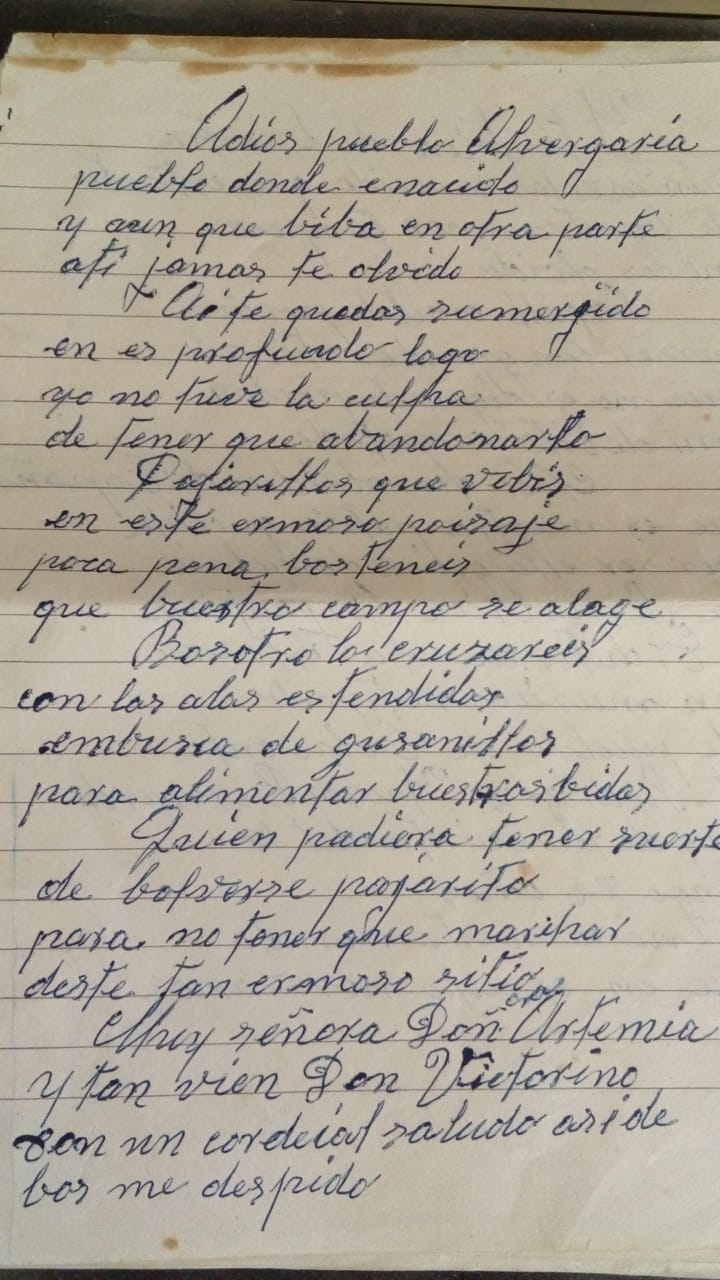 Adios pueblo Alvergaria
pueblo donde enacido
y aun que biba en otra parte
ati jamas te olvido
Ai te quedas sumergido
en es profundo lago
yo no tuve la culpa
de tener que abandonarlo
Pajarillos que vibis
en este ermoso paisaje
poca pena bos teneis
que buestro campo se alage
Bosotro lo cruzareis
con las alas estendidas
embusca de gusanillos
para alimentar buestras bidas
Quien pudiera tener suerte
de bolverse pajarito
para no tener que marchar
deste tan ermoso sitio
Muy señora Doñ Artemia
y tan vien Don Victorino
con un cordeial saludo asi de
bos me despido